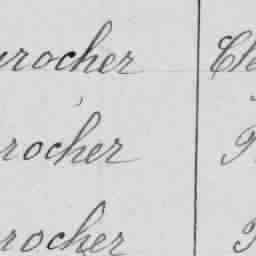 rocher Cle
rocher
rocher